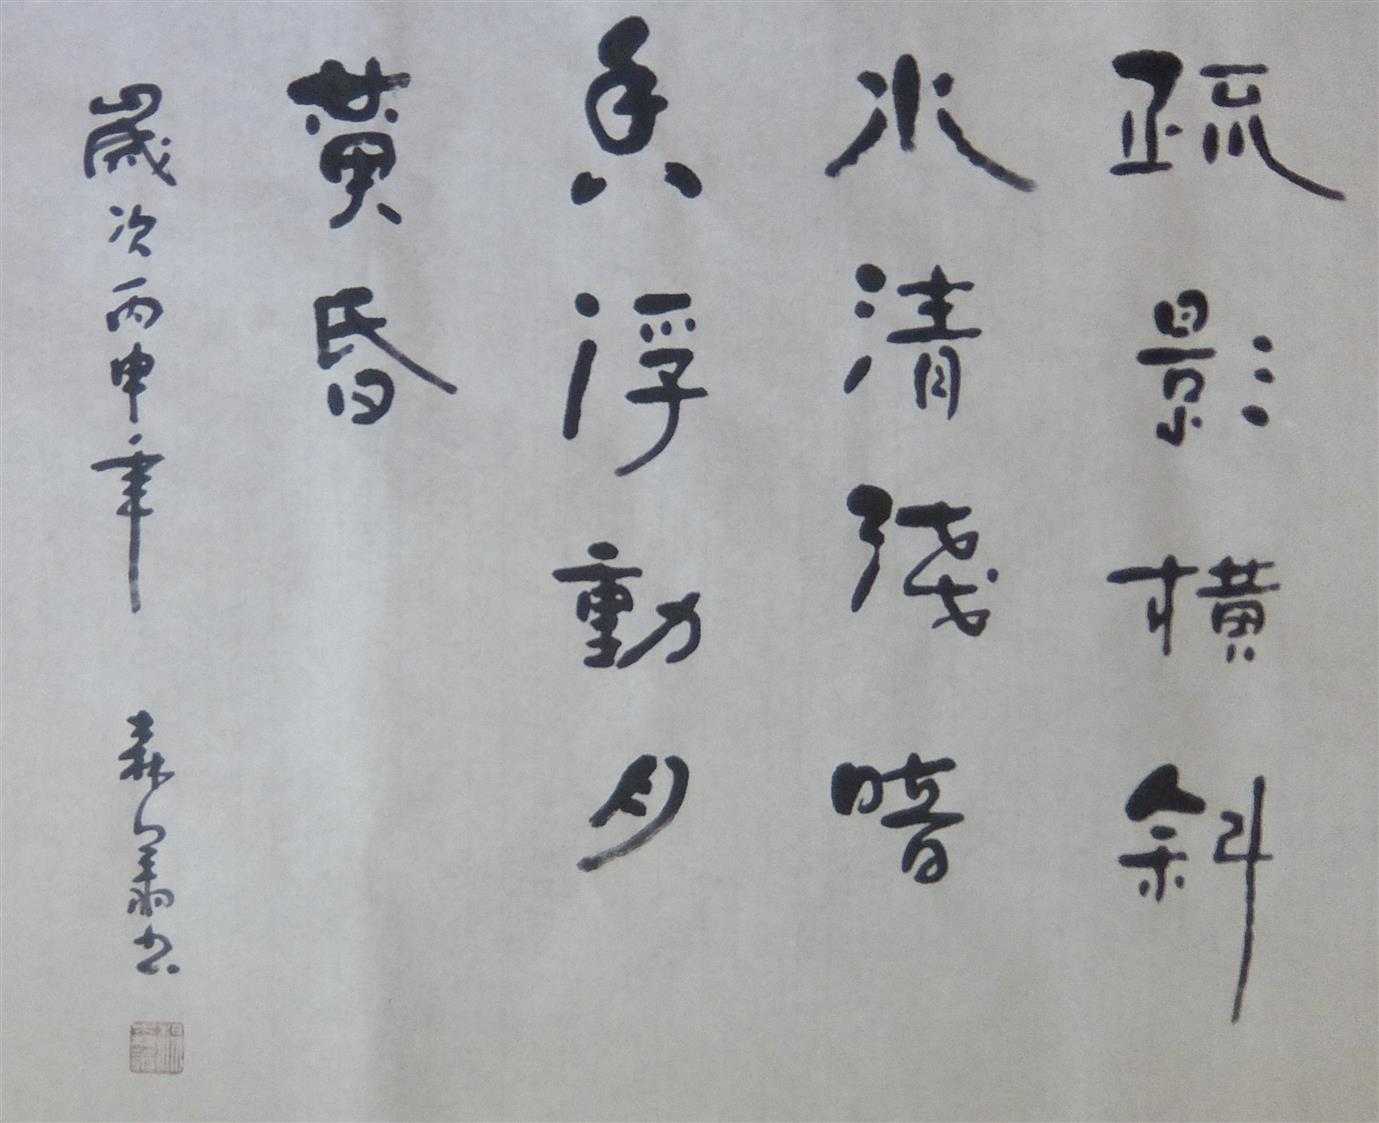 疏影橫斜
水清淺暗
香浮動月
黃昏
歲次丙申年 森書